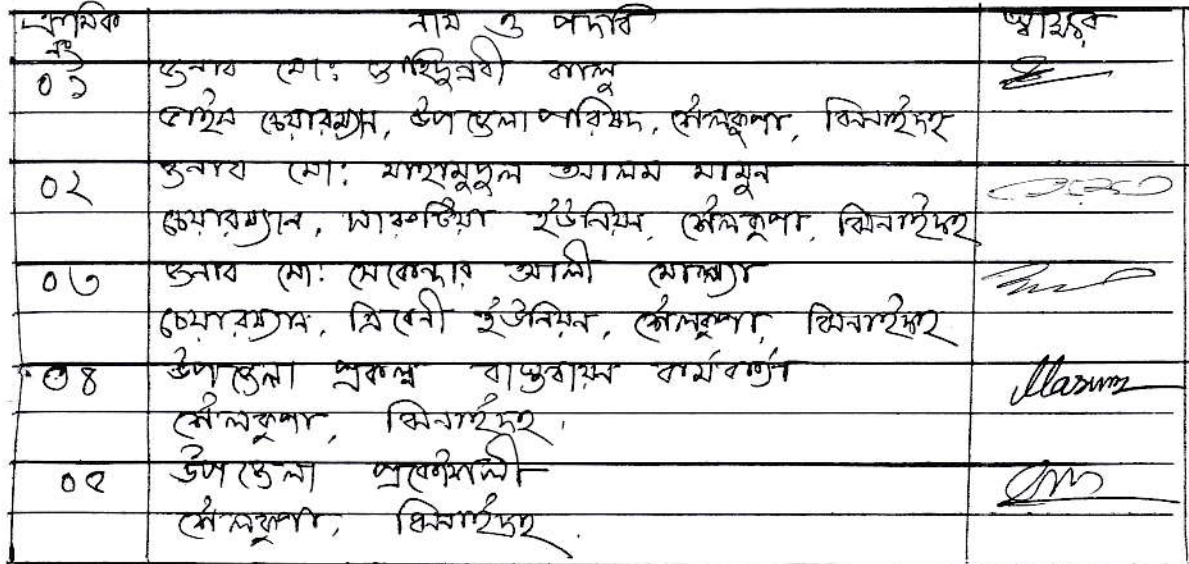 ক্রমিক নং নাম ও পদবি স্বাক্ষর
০১ জনাব মো: জাহিদুন্নবী কালু
ভাইস চেয়ারম্যান, উপজেলা পরিষদ, শৈলকুপা, ঝিনাইদহ
০২ জনাব মো: মাহমুদুল আলম মামুন
চেয়ারম্যান, সারুটিয়া ইউনিয়ন, শৈলকুপা, ঝিনাইদহ
০৩ জনাব মো: সেকেন্দার আলী মোল্যা
চেয়ারম্যান, ত্রিবেনী ইউনিয়ন, শৈলকুপা, ঝিনাইদহ
০৪ উপজেলা প্রকল্প বাস্তবায়ন কর্মকর্তা Masum
শৈলকুপা, ঝিনাইদহ.
০৫ উপজেলা প্রকৌশলী
শৈলকুপা, ঝিনাইদহ.